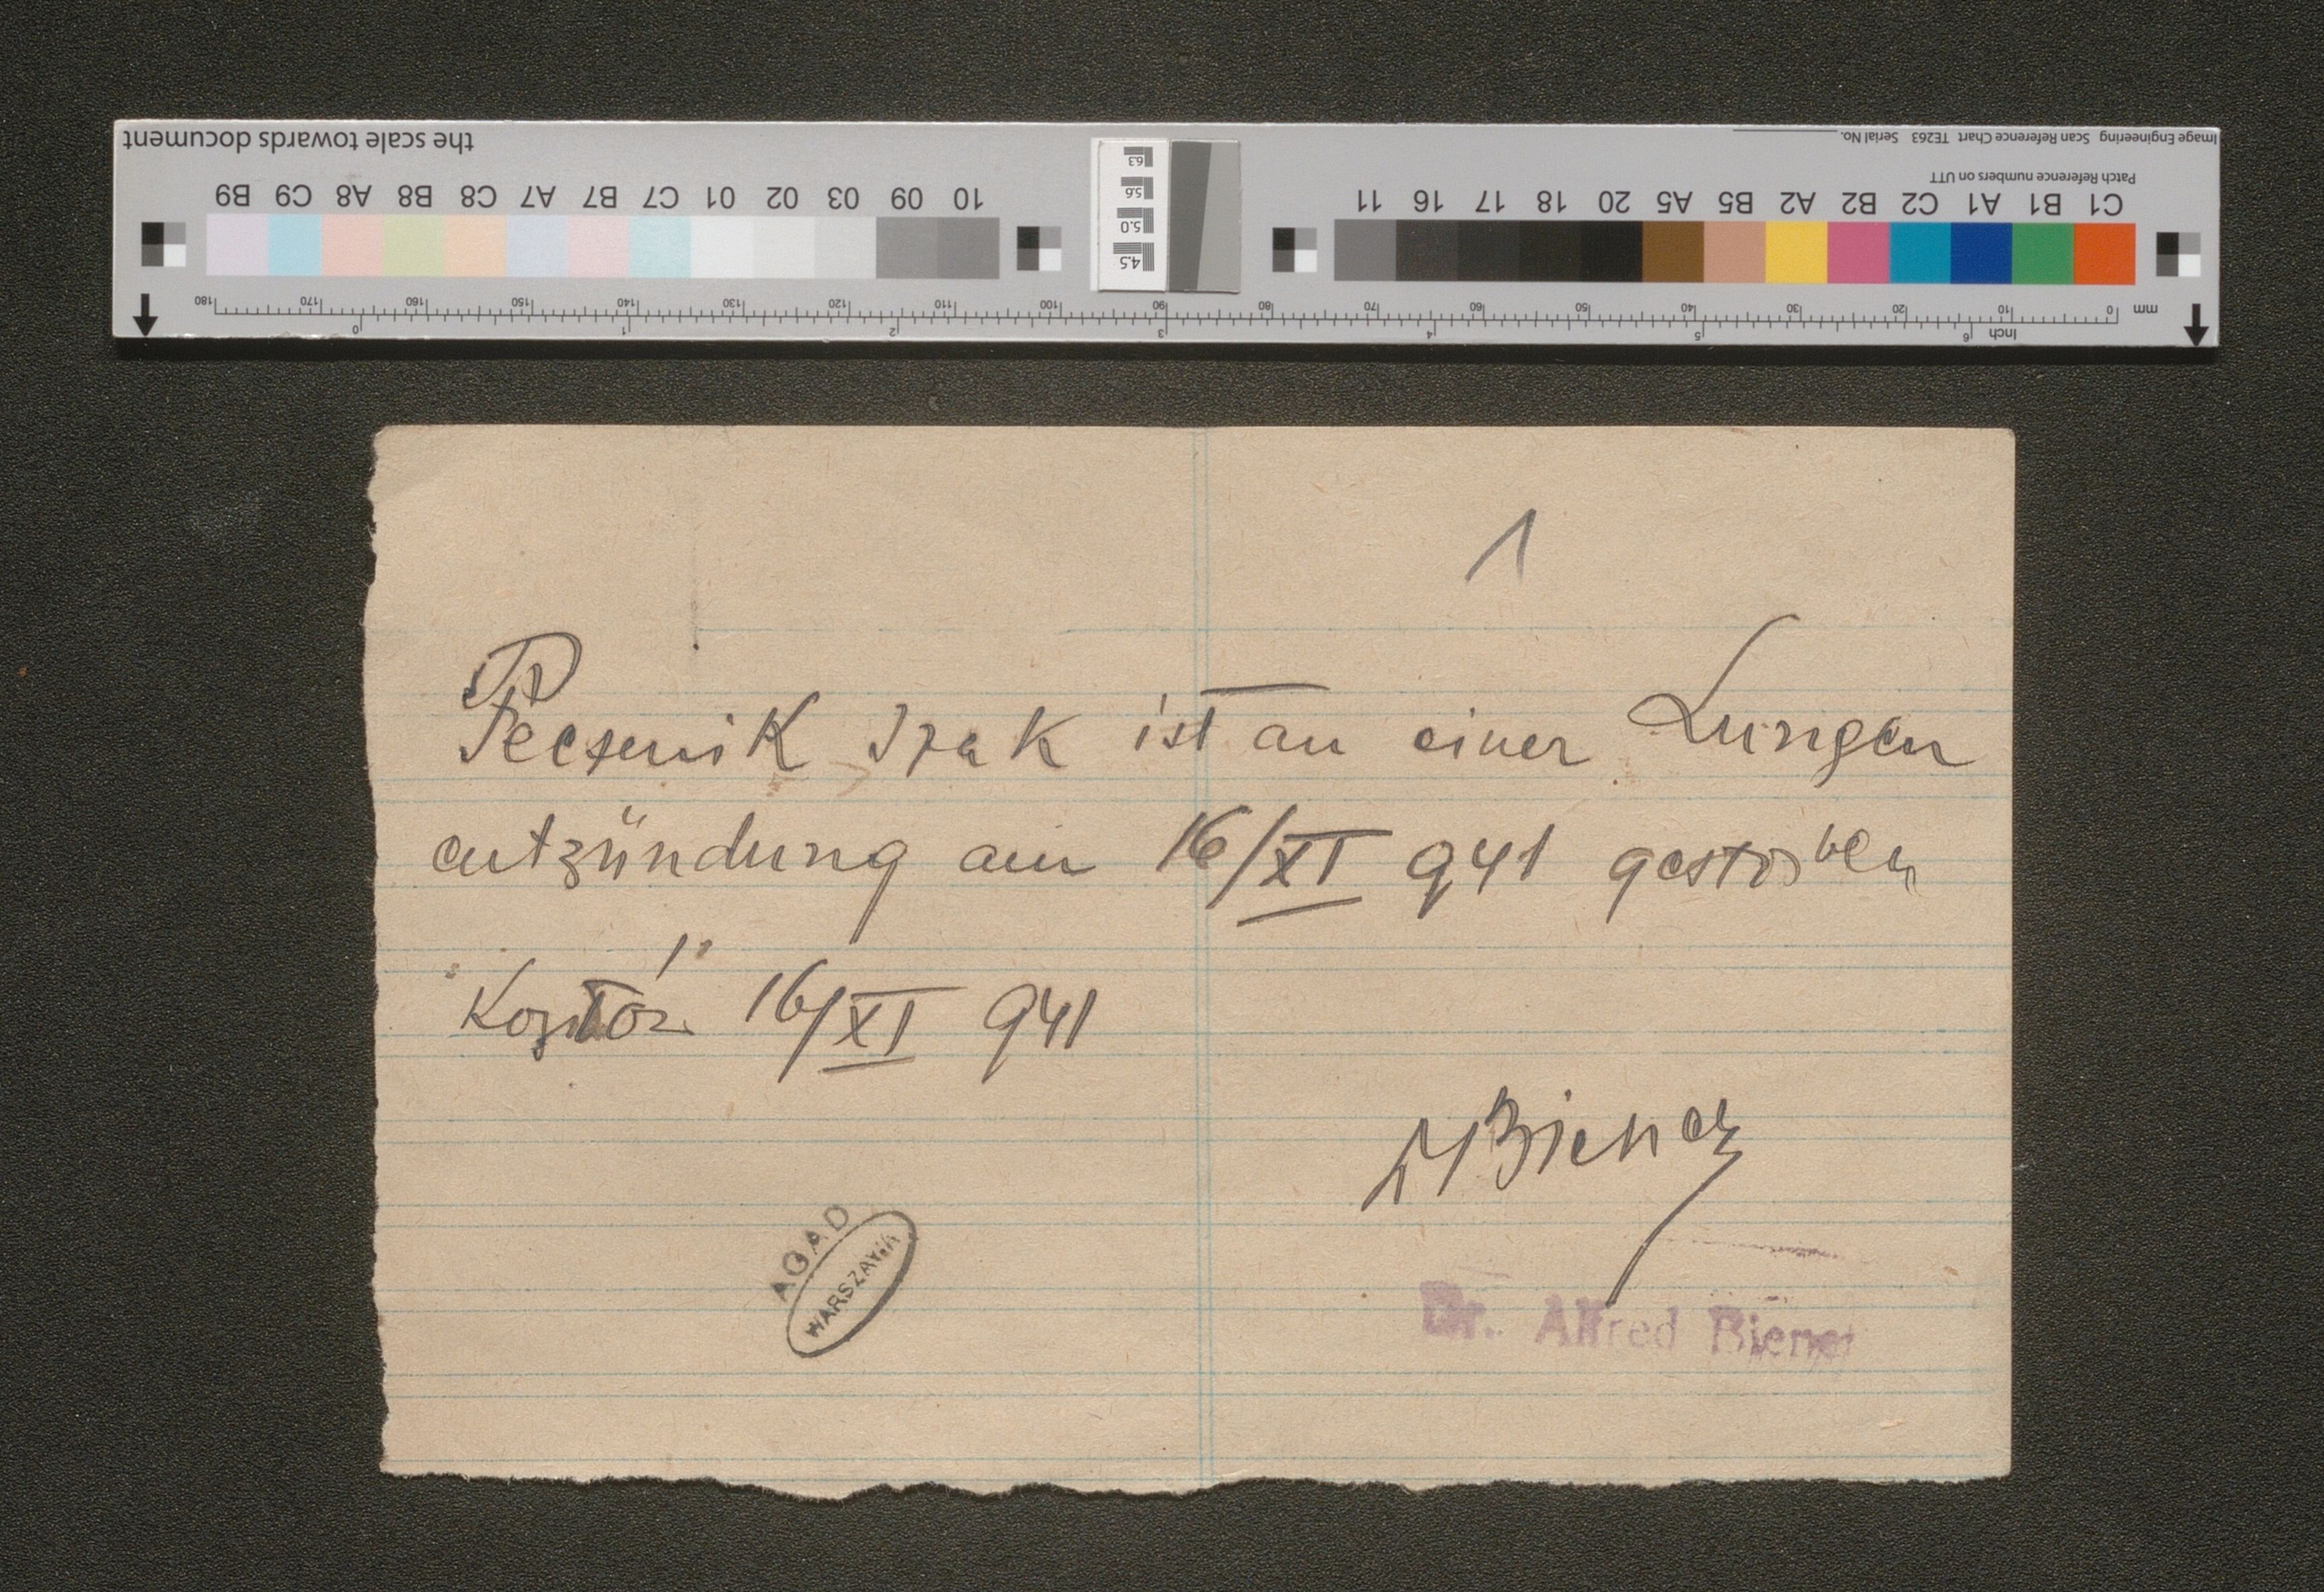 the scale towards document
Image Engineering Scan Reference Chart TE263 Serial No.
Patch Reference numbers on UTT
B9 C9 A8 B8 C8 A7 B7 C7 01 02 03 09 10
11 16 17 18 20 A5 B5 A2 B2 C2 A1 B1 C1
6.3
5.6
5.0
4.5
180 170 160 150 140 130 120 110 100 90 80 70 60 50 40 30 20 10 0 mm
0 1 2 3 4 5 6 Inch
1
ist an einer Lungen
entzündung am 16/XI 941 gestorben
16/XI 941
AGAD
WARSZAWA
Dr. Alfred